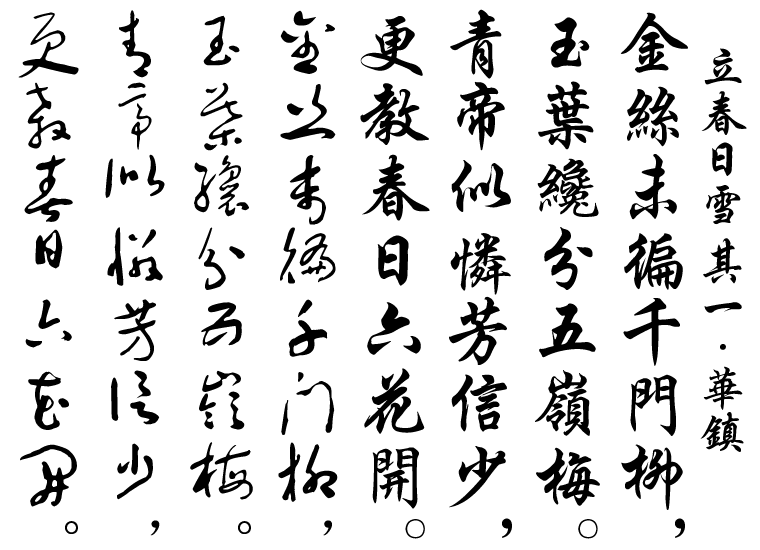 立春日雪其一·華鎮
金絲未徧千門柳，
玉葉纔分五嶺梅。
青帝似憐芳信少，
更教春日六花開。
金丝未徧千门柳，
玉葉纔分五嶺梅。
青帝似憐芳信少，
更教春日六花開。